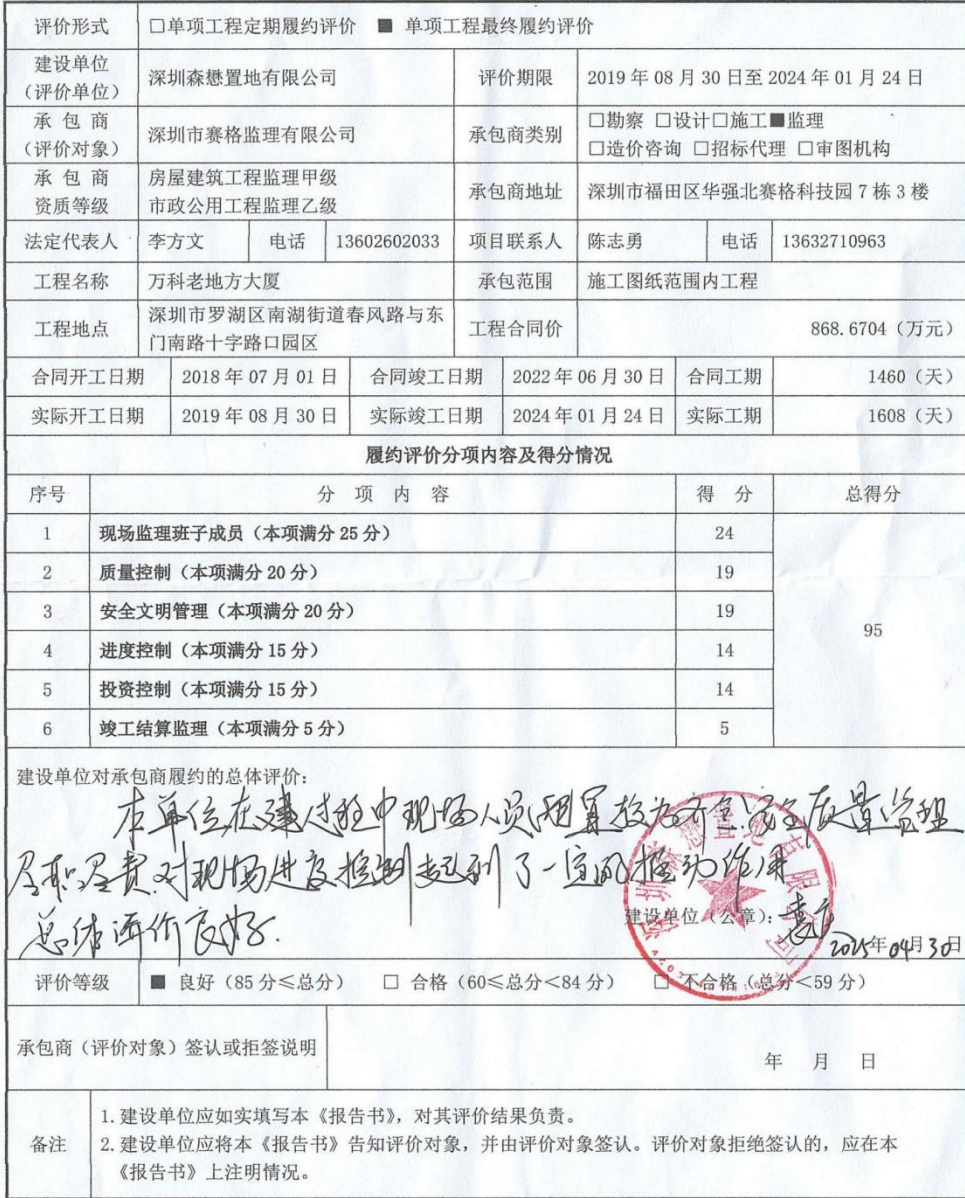 评价形式 □单项工程定期履约评价 ■ 单项工程最终履约评价
建设单位（评价单位） 深圳森懋置地有限公司 评价期限 2019 年 08 月 30 日至 2024 年 01 月 24 日
承 包 商（评价对象） 深圳市赛格监理有限公司 承包商类别 □勘察 □设计□施工■监理
□造价咨询 □招标代理 □审图机构
承 包 商 资质等级 房屋建筑工程监理甲级
市政公用工程监理乙级 承包商地址 深圳市福田区华强北赛格科技园 7 栋 3 楼
法定代表人 李方文 电话 13602602033 项目联系人 陈志勇 电话 13632710963
工程名称 万科老地方大厦 承包范围 施工图纸范围内工程
工程地点 深圳市罗湖区南湖街道春风路与东
门南路十字路口园区 工程合同价 868.6704（万元）
合同开工日期 2018 年 07 月 01 日 合同竣工日期 2022 年 06 月 30 日 合同工期 1460（天）
实际开工日期 2019 年 08 月 30 日 实际竣工日期 2024 年 01 月 24 日 实际工期 1608（天）
履约评价分项内容及得分情况
序号 分 项 内 容 得 分 总得分
1 现场监理班子成员（本项满分 25 分） 24
2 质量控制（本项满分 20 分） 19
3 安全文明管理（本项满分 20 分） 19
95
4 进度控制（本项满分 15 分） 14
5 投资控制（本项满分 15 分） 14
6 竣工结算监理（本项满分 5 分） 5
建设单位对承包商履约的总体评价：
本单位在建过程中现场人员配置较为齐全 安全质量监理
尽职尽责.对现场进度控制起到了一定的推动作用
总体评价良好.
建设单位（公章）：
2025年04月30日
评价等级 ■ 良好（85 分≤总分） □ 合格（60≤总分<84 分） □ 不合格（总分<59 分）
承包商（评价对象）签认或拒签说明
年 月 日
备注 1.建设单位应如实填写本《报告书》，对其评价结果负责。
2.建设单位应将本《报告书》告知评价对象，并由评价对象签认。评价对象拒绝签认的，应在本
《报告书》上注明情况。